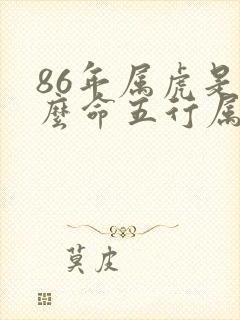 86年属虎是
麽命五行属
莫皮